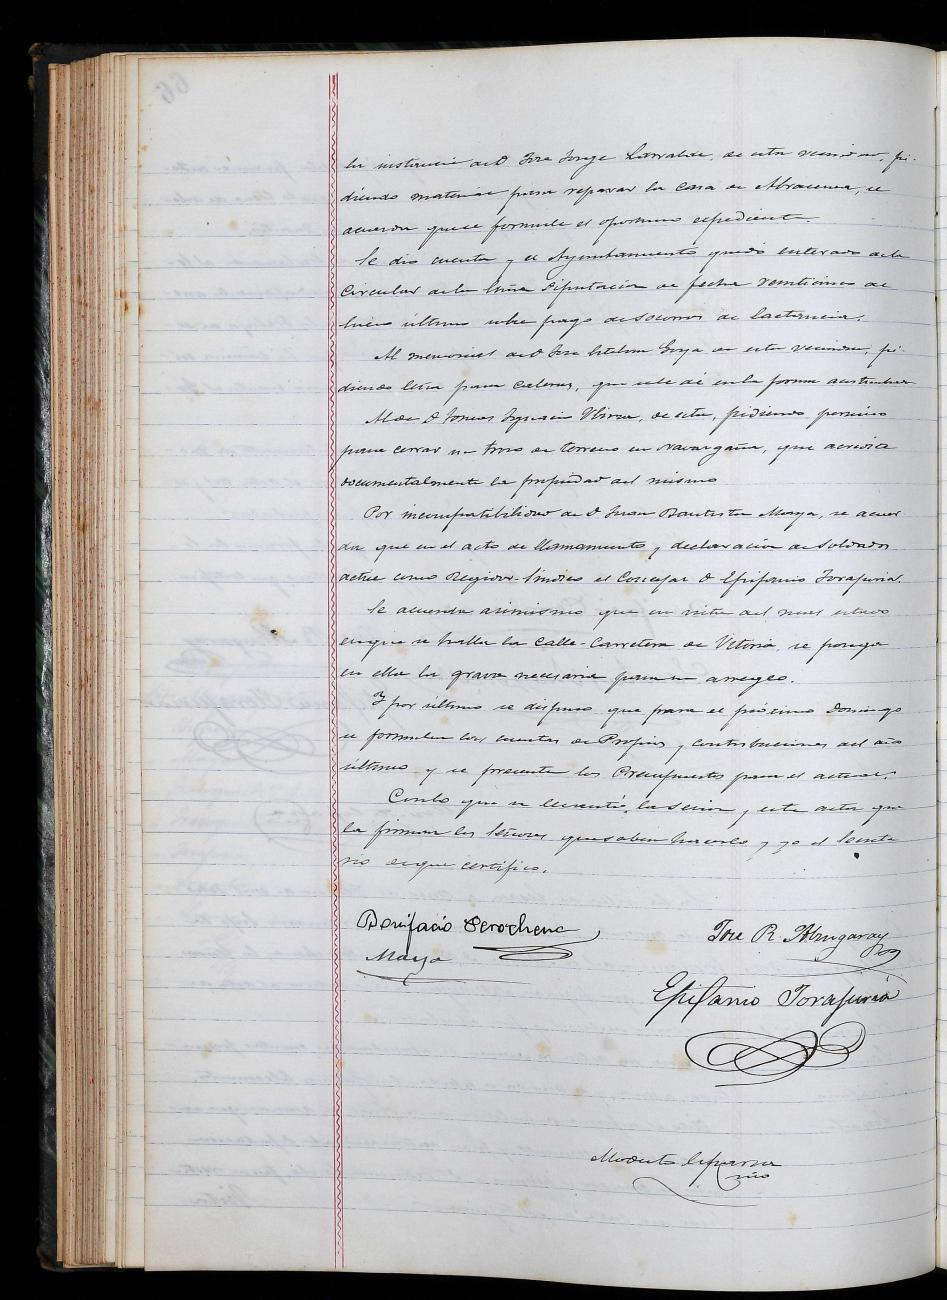 la instancia de D. Jose Jorge Larralde, de esta vecindad, pi-
diendo material para reparar la casa de, se
acuerda que se formule el oportuno expediente
Se dio cuenta y el Ayuntamiento quedó enterado de la
Circular de la Diputación de fecha veinticinco de
último sobre pago de socorros de lactancia.
Al memorial de D. Jose Esteban Goya de esta vecindad, pi-
diendo leña para caleras, que se le dé en la forma
Al de D. Tomas Ignacio, de esta, pidiendo permiso
para cerrar un trozo de terreno en, que acredite
documentalmente la propiedad del mismo
Por incompatibilidad de D. Juan Bautista Maya, se acuer
da que en el acto de llamamiento y declaración de soldados
actue como Regidor-Sindico el Concejal D. Epifanio
Se acuerda asimismo que en vista del mal estado
en que se halla la Calle-Carretera de Vitoria, se ponga
en ella la grava necesaria para su arreglo.
Y por último se dispuso que para el próximo Domingo
se formulen las cuentas de Propios y contribuciones del año
último y se presente los Presupuestos para el actual.
Con lo que se levantó la sesión y esta acta que
la firman los Señores que saben hacerlo y yo el Secreta
rio de que certifico.
Bonifacio
Maya
Jose R.
Epifanio
Modesto